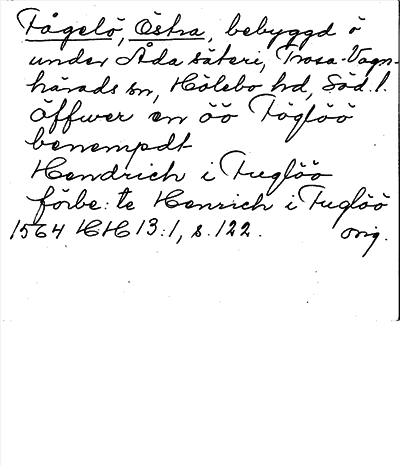 Fågelö, Östra, bebyggd ö
under Åda säteri, Trosa-Vagn-
härads sn, Hölebo hd, Söd. l.
öffwer en öö Föglöö
benempdt
Hendrich i Fuglöö
förbe: te Henrich i Fuglöö
1564 HH 13:1, s. 122. orig.